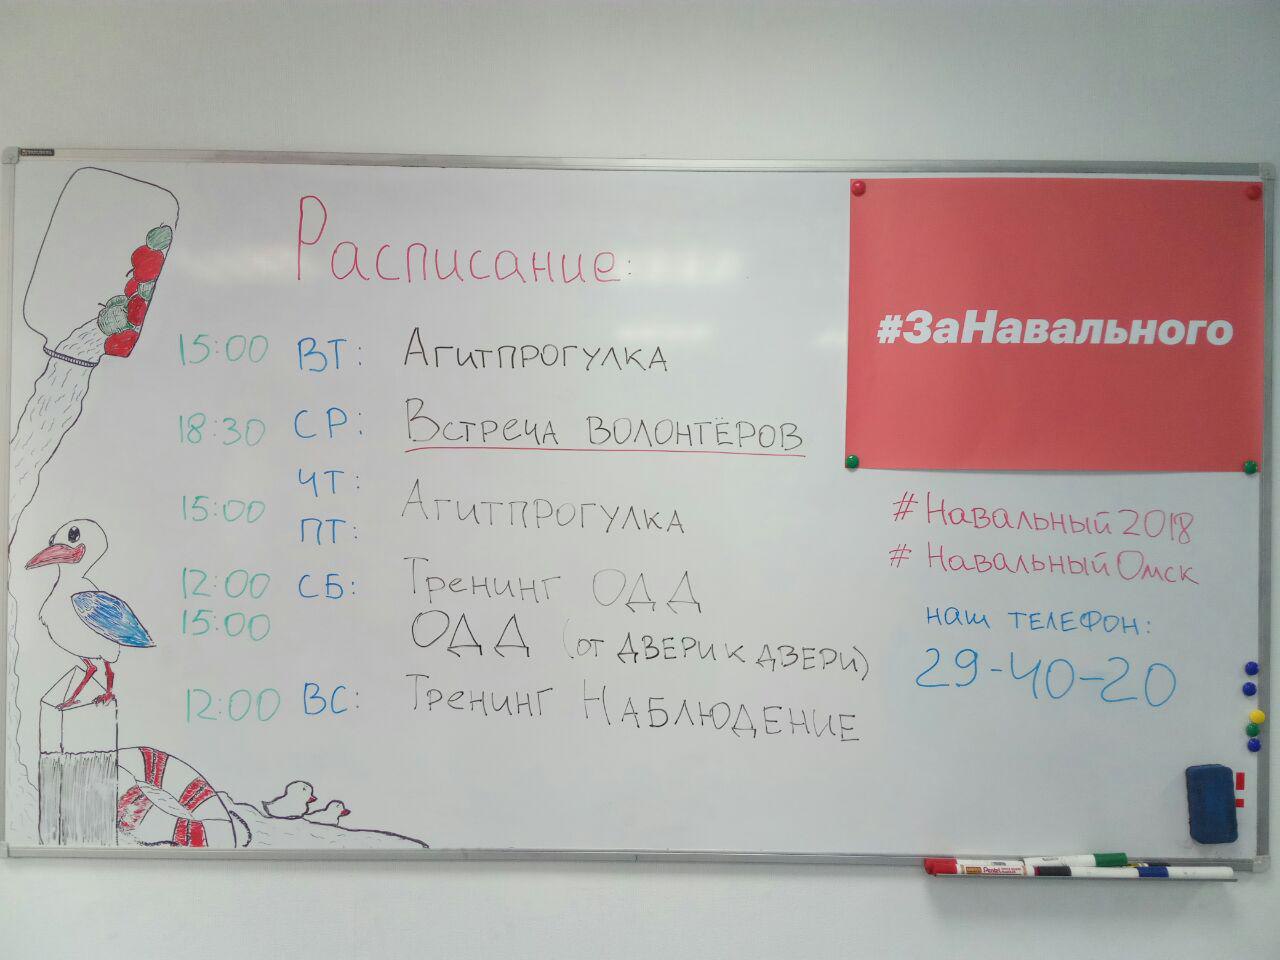 Расписание:
15:00 ВТ: Агитпрогулка
18:30 СР: Встреча волонтёров
ЧТ:
15:00 Агитпрогулка
ПТ:
12:00 СБ: Тренинг ОДД
15:00 ОДД (от двери к двери)
12:00 ВС: Тренинг Наблюдение
#ЗаНавального
#Навальный2018
#НавальныйОмск
наш телефон:
29-40-20